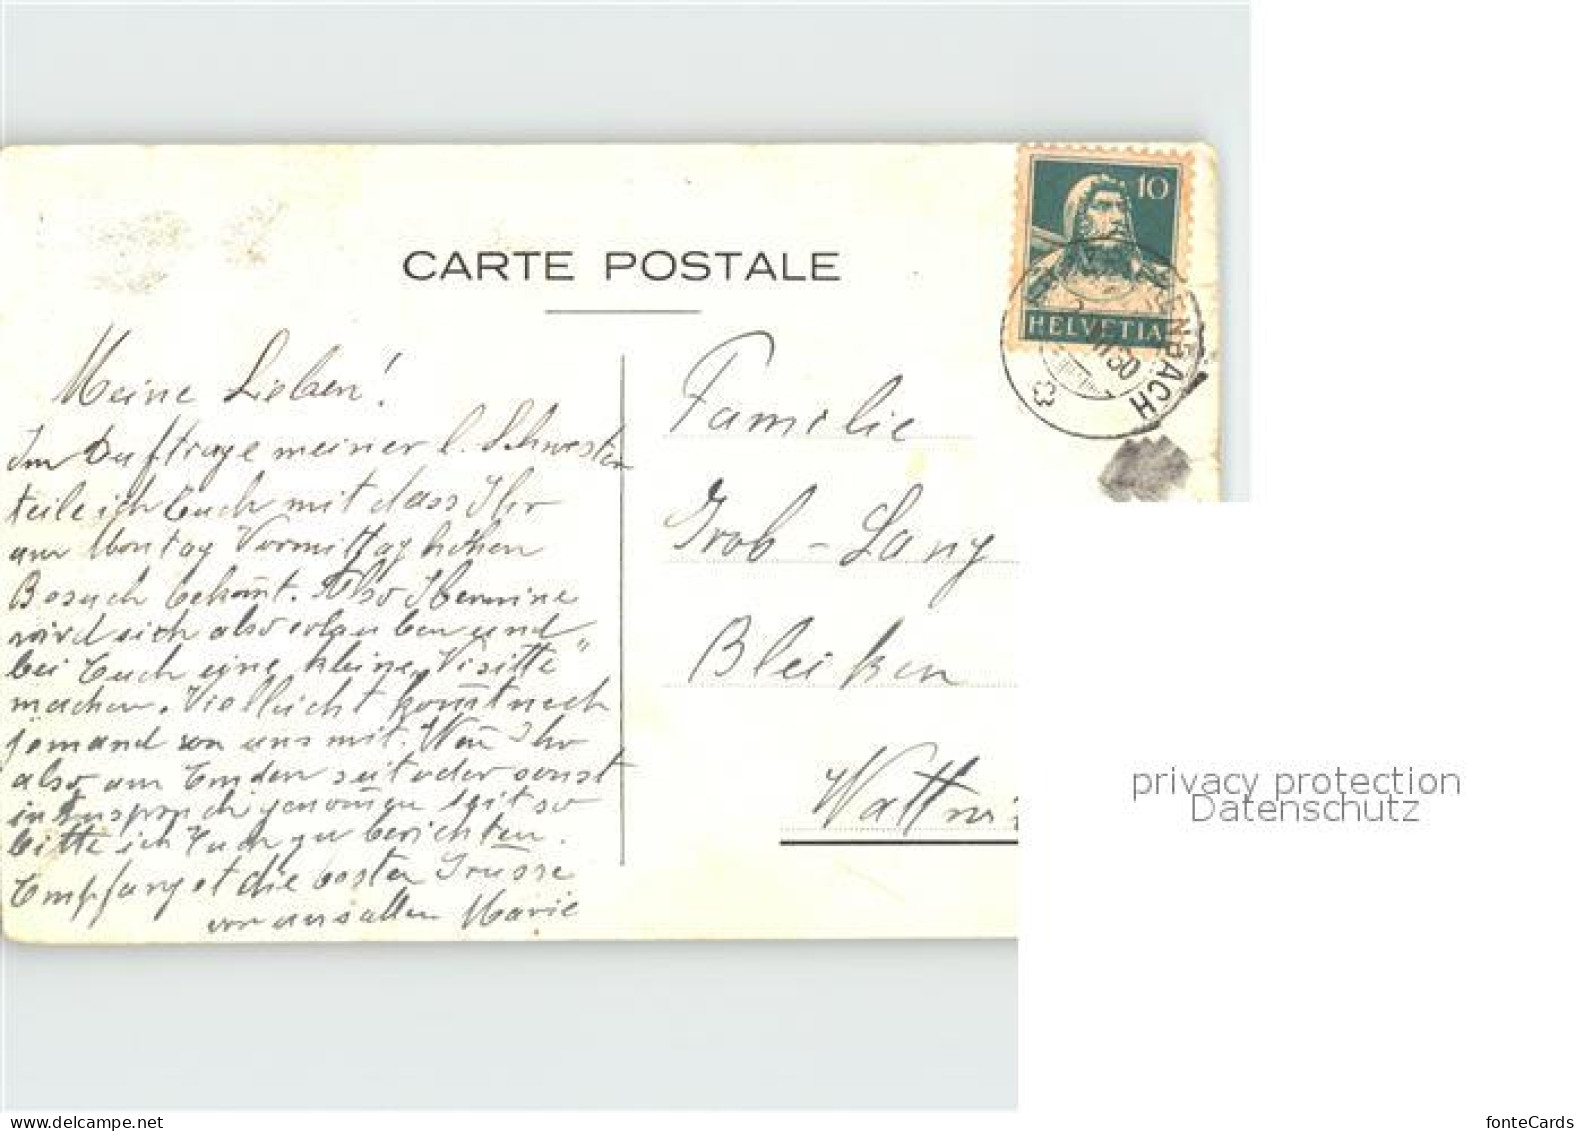 CARTE POSTALE
10
HELVETIA
ENBACH
30
Meine Lieben!
Im Auftrage meiner l. Schwester
teile ich Euch mit dass Ihr
am Montag Vormittag hohen
Besuch bekom̄t. Also Hermine
wird sich also erlauben und
bei Euch eine kleine „Visitte"
machen. Vielleicht kom̄t noch
jemand von uns mit. Wen̄ Ihr
also am Emden seit oder sonst
in Anspruch genom̄en seit so
bitte ich Euch zu berichten.
Empfanget die besten Grüsse
von uns allen Marie
Familie
Grob-Lang
Bleiken
Wattwi
privacy protection
Datenschutz
akpool.de
fonteCards